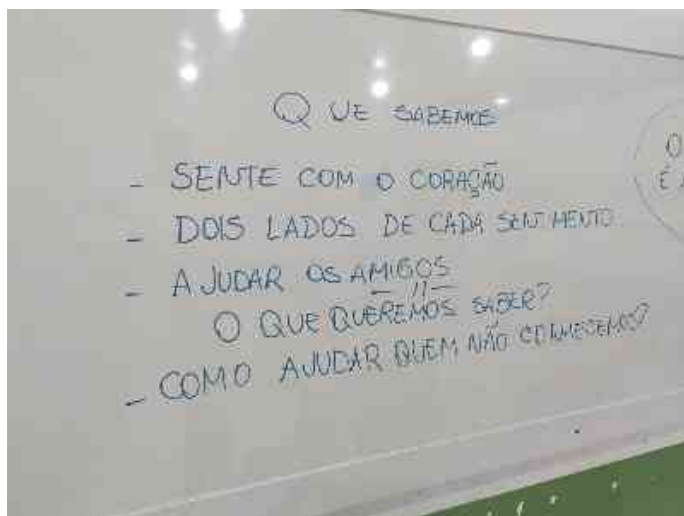 Q UE SABEMOS
- SENTE COM O CORAÇÃO
- DOIS LADOS DE CADA SENTIMENTO
- AJUDAR OS AMIGOS
— // —
O QUE QUEREMOS SABER?
- COMO AJUDAR QUEM NÃO CONHECEMOS?
O
É